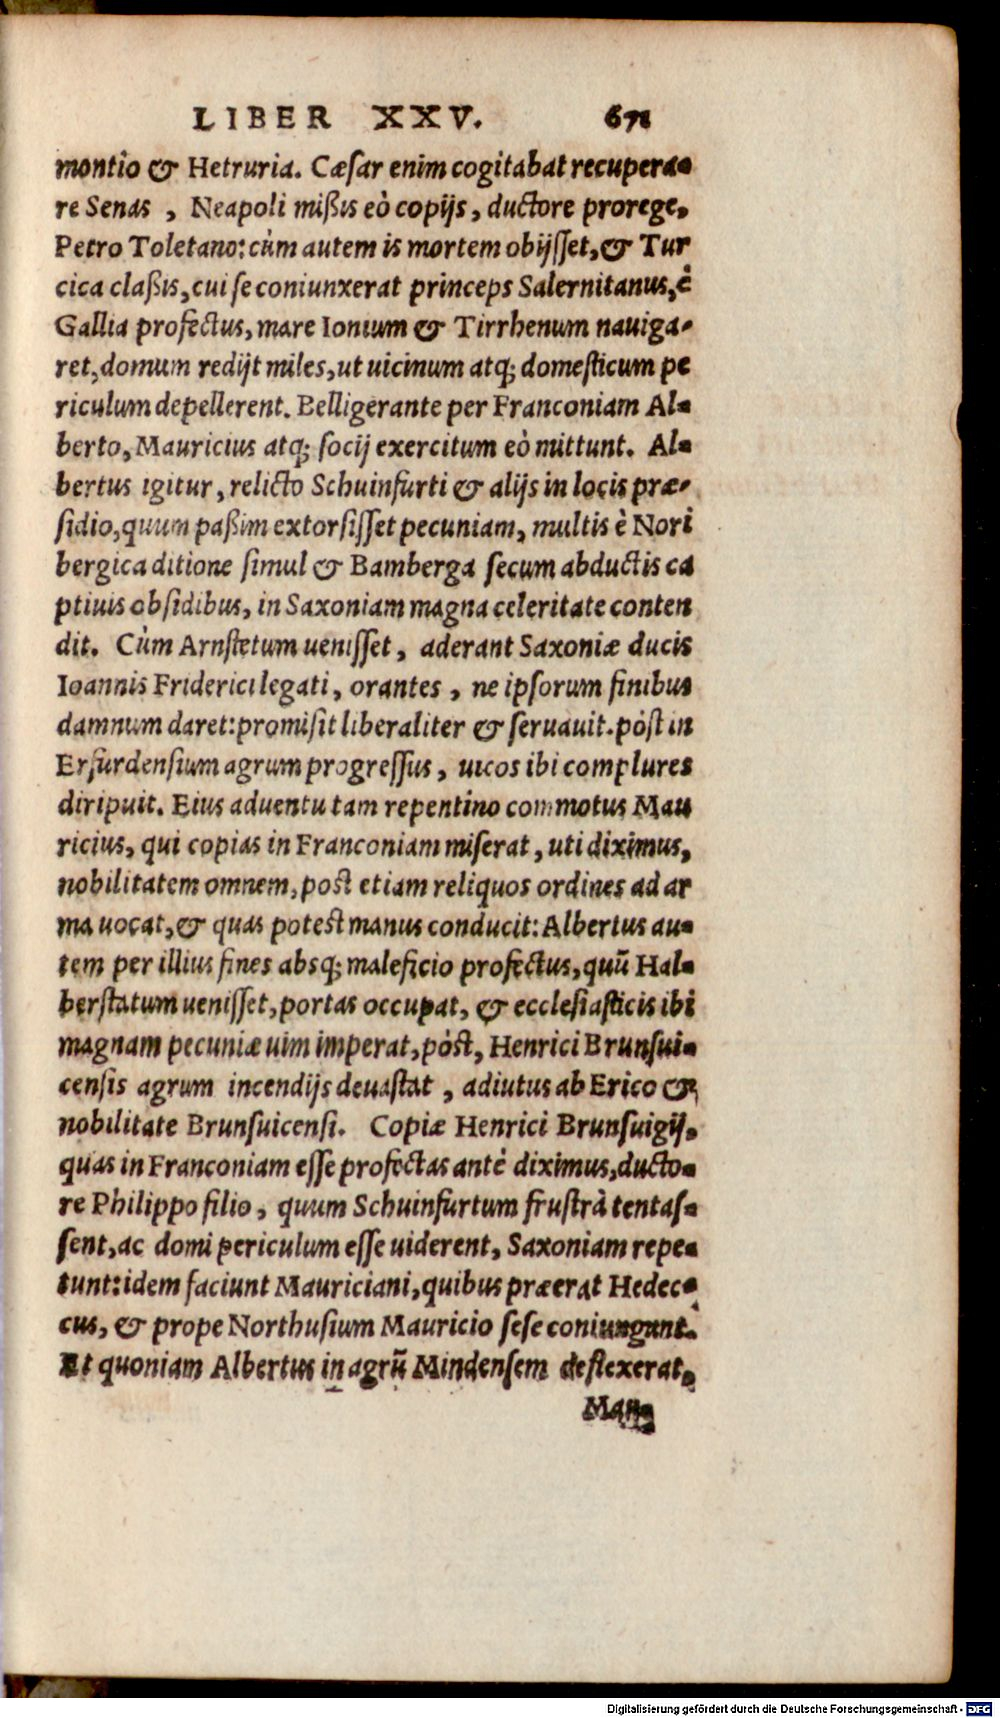 LIBER XXV. 671
montio & Hetruria. Cæſar enim cogitabat recupera-
re Senas , Neapoli mißis eò copijs, ductore prorege,
Petro Toletano: cùm autem is mortem obijſſet, & Tur
cica claßis, cui ſe coniunxerat princeps Salernitanus, è
Gallia profectus, mare Ionium & Tirrhenum nauiga-
ret, domum redijt miles, ut uicinum atq; domeſticum pe
riculum depellerent. Belligerante per Franconiam Al-
berto, Mauricius atq; ſocij exercitum eò mittunt. Al-
bertus igitur, relicto Schuinfurti & alijs in locis præ-
ſidio, quum paßim extorſiſſet pecuniam, multis è Nori
bergica ditione ſimul & Bamberga ſecum abductis ca
ptiuis obſidibus, in Saxoniam magna celeritate conten
dit. Cùm Arnſtetum ueniſſet, aderant Saxoniæ ducis
Ioannis Friderici legati, orantes, ne ipſorum finibus
damnum daret: promiſit liberaliter & ſeruauit. pòſt in
Erfurdenſium agrum progreſſus, uicos ibi complures
diripuit. Eius aduentu tam repentino commotus Mau
ricius, qui copias in Franconiam miſerat, uti diximus,
nobilitatem omnem, poſt etiam reliquos ordines ad ar
ma uocat, & quas poteſt manus conducit: Albertus au-
tem per illius fines absq; maleficio profectus, quū Hal-
berſtatum ueniſſet, portas occupat, & eccleſiaſticis ibi
magnam pecuniæ uim imperat, pòſt, Henrici Brunſui-
cenſis agrum incendijs deuaſtat, adiutus ab Erico &
nobilitate Brunſuicenſi. Copiæ Henrici Brunſuigij,
quas in Franconiam eſſe profectas antè diximus, ducto-
re Philippo filio, quum Schuinfurtum fruſtrà tentaſ-
ſent, ac domi periculum eſſe uiderent, Saxoniam repe-
tunt: idem faciunt Mauriciani, quibus præerat Hedec-
cus, & prope Northuſium Mauricio ſeſe coniungunt.
Et quoniam Albertus in agrū Mindenſem deflexerat,
Mau-
Digitalisierung gefördert durch die Deutsche Forschungsgemeinschaft - DFG